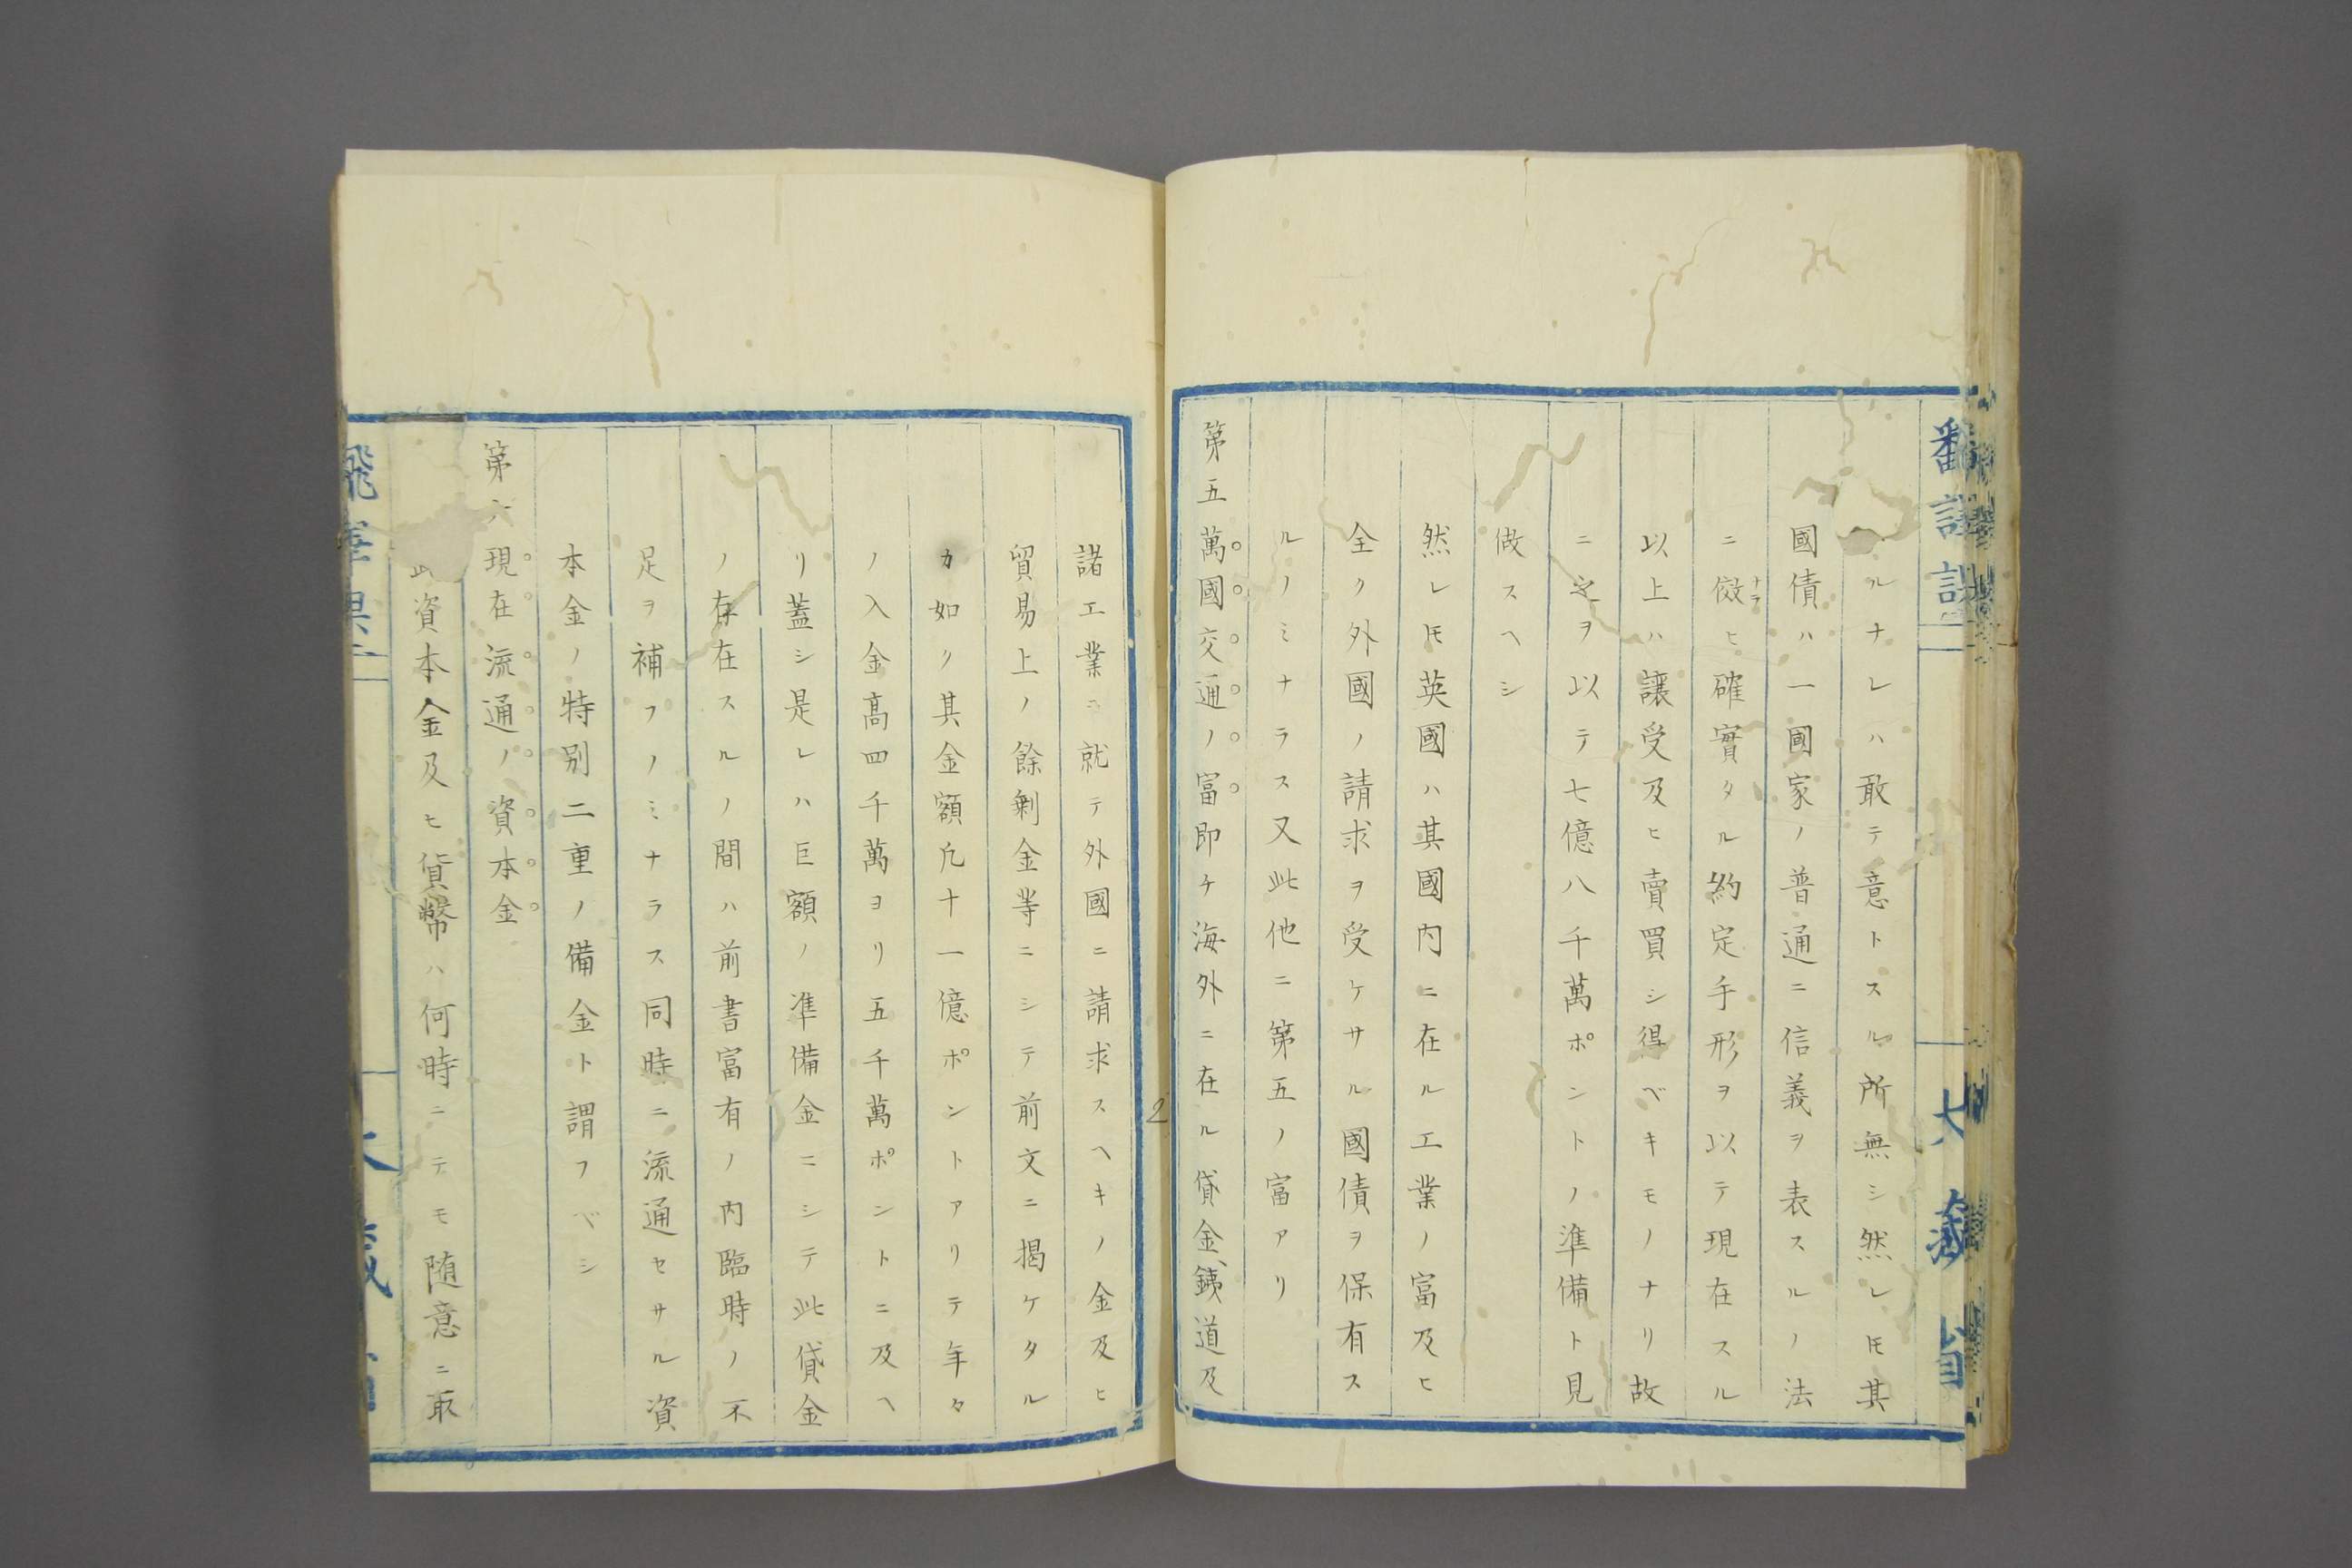 翻訳課
大藏省
ルナレハ敢テ意トスル所無シ然レ𪜈其
國債ハ一國家ノ普通ニ信義ヲ表スルノ法
ニ倣ナラヒ確實タル約定手形ヲ以テ現在スル
以上ハ讓受及ヒ賣買シ得ベキモノナリ故
ニ之ヲ以テ七億八千萬ポントノ準備ト見
做スヘシ
然レ𪜈英國ハ其國内ニ在ル工業ノ富及ヒ
全ク外國ノ請求ヲ受ケサル國債ヲ保有ス
ルノミナラス又此他ニ第五ノ富アリ
第五萬國交通ノ富即チ海外ニ在ル貸金、銕道及
諸工業ニ就テ外國ニ請求スヘキノ金及ヒ
貿易上ノ餘剰金等ニシテ前文ニ掲ケタル
カ如ク其金額凢十一億ポントアリテ年々
ノ入金髙四千萬ヨリ五千萬ポントニ及ヘ
リ蓋シ是レハ巨額ノ準備金ニシテ此貸金
ノ存在スルノ間ハ前書富有ノ内臨時ノ不
足ヲ補フノミナラス同時ニ流通セサル資
本金ノ特别二重ノ備金ト謂フベシ
第六現在流通ノ資本金
此資本金及モ貨幣ハ何時ニテモ随意ニ取